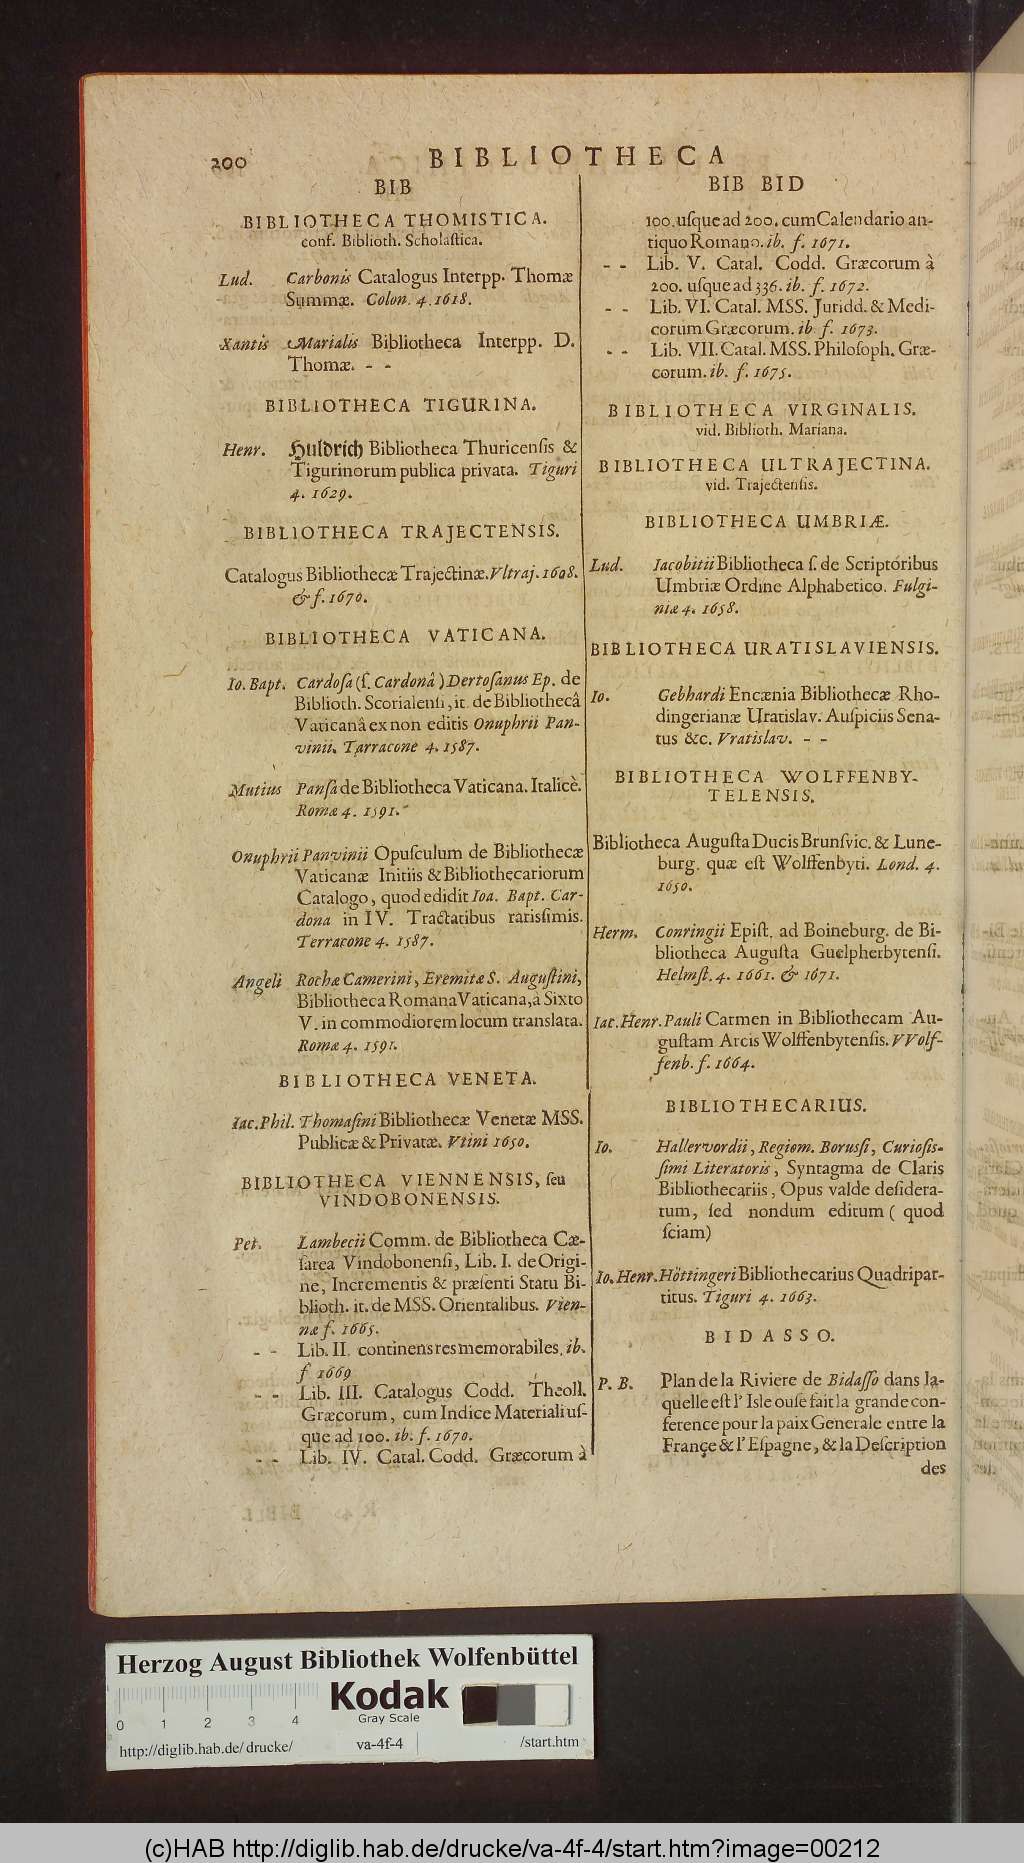 200
BIBLIOTHECA
BIB
BIBLIOTHECA THOMISTICA.
conf. Biblioth. Scholaſtica.
Lud. Carbonis Catalogus Interpp. Thomæ
Summæ. Colon. 4. 1618.
Xantis Marialis Bibliotheca Interpp. D.
Thomæ. - -
BIBLIOTHECA TIGURINA.
Henr. Huldrich Bibliotheca Thuricenſis &
Tigurinorum publica privata. Tiguri
4. 1629.
BIBLIOTHECA TRAJECTENSIS.
Catalogus Bibliothecæ Trajectinæ. Vltraj. 1608.
& f. 1670.
BIBLIOTHECA VATICANA.
Io. Bapt. Cardoſa (ſ. Cardonâ) Dertoſanus Ep. de
Biblioth. Scorialenſi, it. de Bibliothecâ
Vaticanâ ex non editis Onuphrii Pan-
vinii. Tarracone 4. 1587.
Mutius Panſa de Bibliotheca Vaticana. Italicè.
Romæ 4. 1591.
Onuphrii Panvinii Opuſculum de Bibliothecæ
Vaticanæ Initiis & Bibliothecariorum
Catalogo, quod edidit Ioa. Bapt. Car-
dona in IV. Tractatibus rarissimis.
Terracone 4. 1587.
Angeli Rochæ Camerini, Eremitæ S. Auguſtini,
Bibliotheca Romana Vaticana, à Sixto
V. in commodiorem locum translata.
Romæ 4. 1591.
BIBLIOTHECA VENETA.
Iac. Phil. Thomaſini Bibliothecæ Venetæ MSS.
Publicæ & Privatæ. Vtini 1650.
BIBLIOTHECA VIENNENSIS, ſeu
VINDOBONENSIS.
Pet. Lambecii Comm. de Bibliotheca Cæ-
ſarea Vindobonenſi, Lib. I. de Origi-
ne, Incrementis & præſenti Statu Bi-
blioth. it. de MSS. Orientalibus. Vien-
næ f. 1665.
- - Lib. II. continens res memorabiles. ib.
f 1669
- - Lib. III. Catalogus Codd. Theoll.
Græcorum, cum Indice Materiali uſ-
que ad 100. ib. f. 1670.
- - Lib. IV. Catal. Codd. Græcorum à
BIB BID
100. uſque ad 200. cum Calendario an-
tiquo Romano. ib. f. 1671.
- - Lib. V. Catal. Codd. Græcorum à
200. uſque ad 336. ib. f. 1672.
- - Lib. VI. Catal. MSS. Juridd. & Medi-
corum Græcorum. ib f. 1673.
- - Lib. VII. Catal. MSS. Philoſoph. Græ-
corum. ib. f. 1675.
BIBLIOTHECA VIRGINALIS.
vid. Biblioth. Mariana.
BIBLIOTHECA ULTRAJECTINA.
vid. Trajectenſis.
BIBLIOTHECA UMBRIÆ.
Lud. Iacobitii Bibliotheca ſ. de Scriptoribus
Umbriæ Ordine Alphabetico. Fulgi-
niæ 4. 1658.
BIBLIOTHECA URATISLAVIENSIS.
Io. Gebhardi Encænia Bibliothecæ Rho-
dingerianæ Uratislav. Auſpiciis Sena-
tus &c. Vratislav. - -
BIBLIOTHECA WOLFFENBY-
TELENSIS.
Bibliotheca Auguſta Ducis Brunſvic. & Lune-
burg. quæ eſt Wolffenbyti. Lond. 4.
1650.
Herm. Conringii Epiſt. ad Boineburg. de Bi-
bliotheca Auguſta Guelpherbytenſi.
Helmſt. 4. 1661. & 1671.
Iac. Henr. Pauli Carmen in Bibliothecam Au-
guſtam Arcis Wolffenbytenſis. VVolf-
fenb. f. 1664.
BIBLIOTHECARIUS.
Io. Hallervordii, Regiom. Borusſi, Curioſis-
ſimi Literatoris, Syntagma de Claris
Bibliothecariis, Opus valde deſidera-
tum, ſed nondum editum ( quod
ſciam)
Io. Henr. Höttingeri Bibliothecarius Quadripar-
titus. Tiguri 4. 1663.
BIDASSO.
P. B. Plan de la Riviere de Bidaſſo dans la-
quelle eſt l' Isle ouſe fait la grande con-
ference pour la paix Generale entre la
Françe & l' Eſpagne, & la Deſcription
des
Herzog August Bibliothek Wolfenbüttel
0 1 2 3 4
Kodak
Gray Scale
http://diglib.hab.de/drucke/ va-4f-4 /start.htm
(c)HAB http://diglib.hab.de/drucke/va-4f-4/start.htm?image=00212